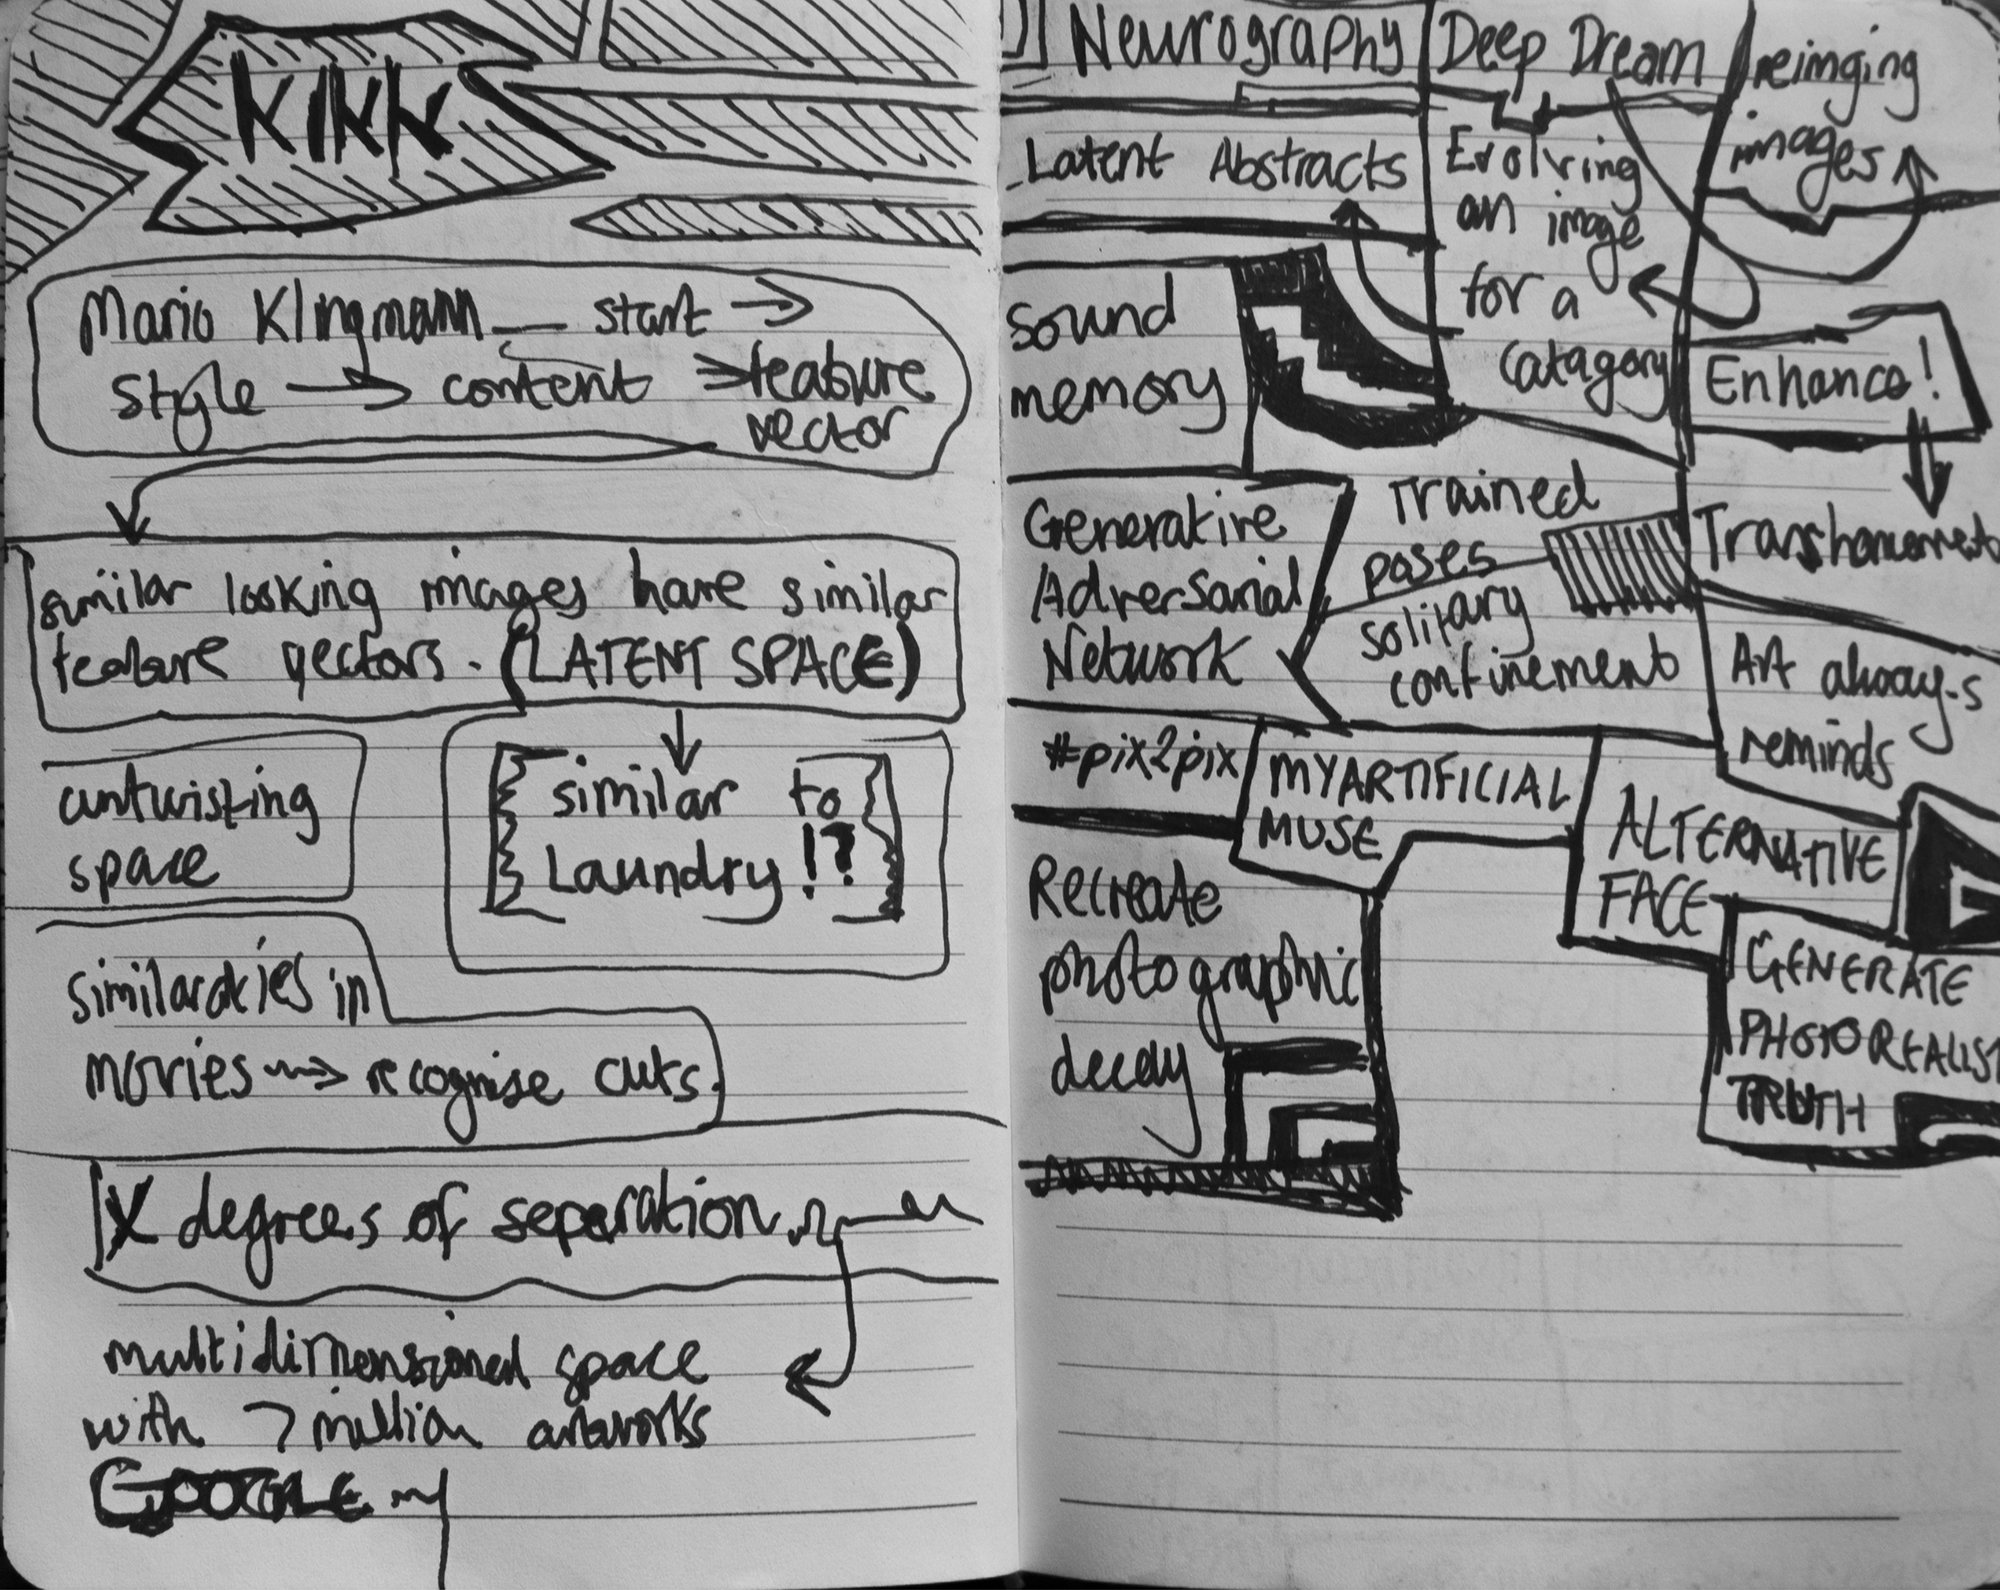 KIKK
Mario Klingmann — start →
style → content ⇒ feature
vector
similar looking images have similar
feature vectors. (LATENT SPACE)
untwisting
space
similar to
Laundry!?
similaraties in
movies → recognise cuts.
X degrees of separation
multidimensional space
with 7 million artworks
GOOGLE
Neurography
Latent Abstracts
sound
memory
Generative
Adversarial
Network
#pix2pix
Recreate
photographic
decay
Deep Dream
Evolving
an image
for a
catagory
trained
poses
solitary
confinement
MY ARTIFICIAL
MUSE
reimging
images
Enhance!
Art always
reminds
ALTERNATIVE
FACE
GENERATE
PHOTOREALIST
TRUTH